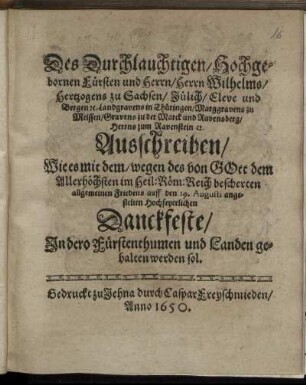 16
Des Durchlauchtigen/Hochge-
bornen Fürsten und Herrn/Herrn Wilhelms/
Hertzogens zu Sachsen/ Jülich/ Cleve und
Bergen ꝛc. Landgravens in Thüringen/Marggravens zu
Meissen/Gravens zu der Marck und Ravensberg/
Herrns zum Ravenstein ꝛc.
Ausschreiben/
Wie es mit dem/ wegen des von GOtt dem
Allerhöchsten im Heil: Röm: Reich bescherten
allgemeinen Friedens auff den 19. Augusti ange-
stelten Hochfeyerlichen
Danckfeste/
In dero Fürstenthumen und Landen ge-
halten werden sol.
Gedruckt zu Jehna durch Caspar Freyschmieden/
Anno 1650.